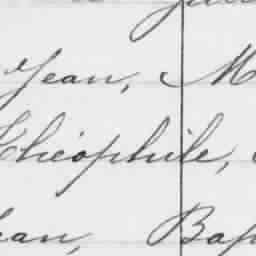 Jean, M
Théophile,
ean, Bap